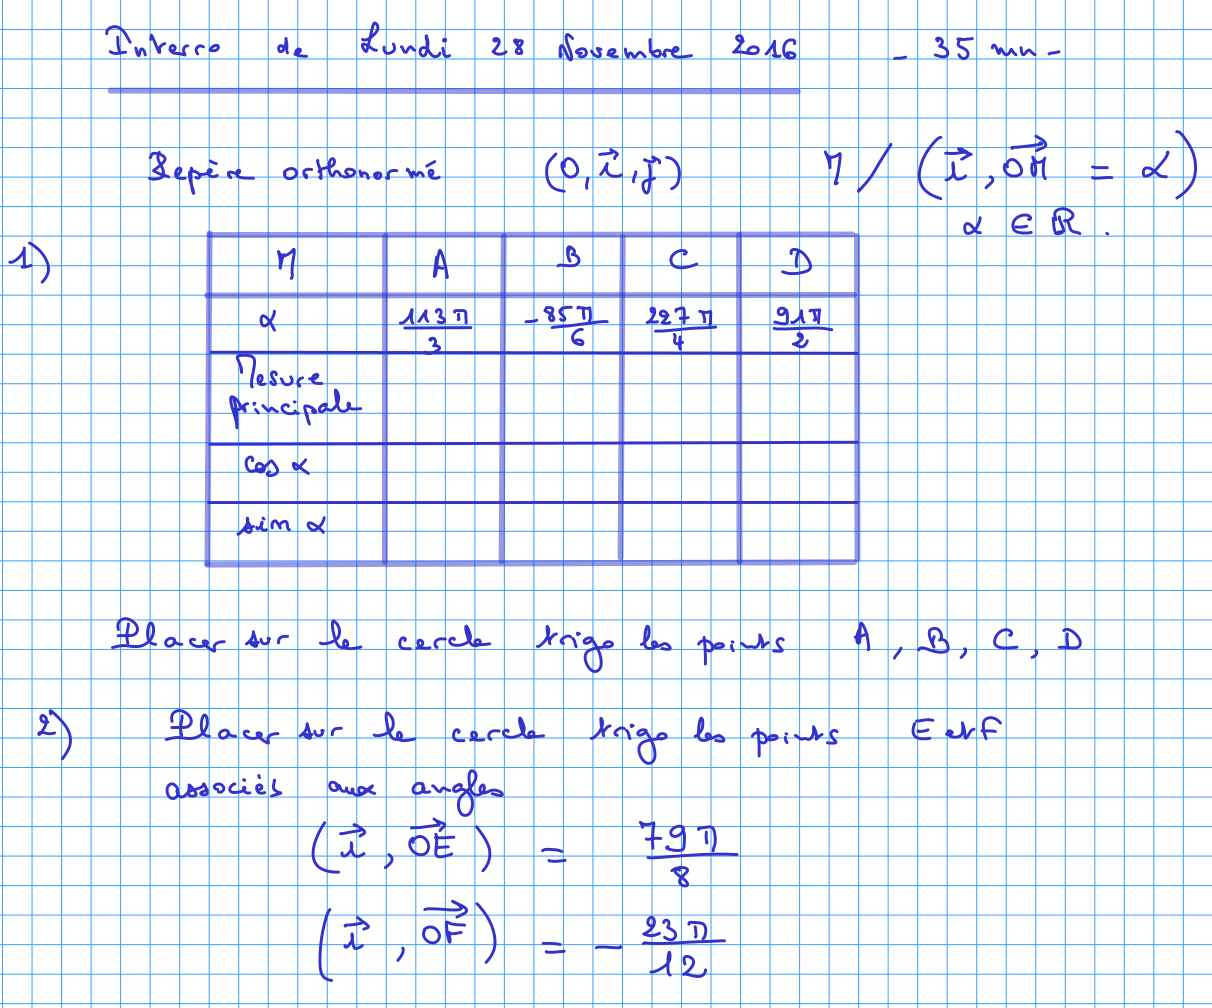 Interro de Lundi 28 Novembre 2016 - 35 mn -
Repère orthonormé (O, i⃗, j⃗) M / (i⃗, OM⃗ = α)
α ∈ ℝ.
1)
M A B C D
α 113π/3 -85π/6 227π/4 91π/2
Mesure
principale
cos α
sin α
Placer sur le cercle trigo les points A, B, C, D
2) Placer sur le cercle trigo les points E et F
associés aux angles
(i⃗, OE⃗) = 79π/8
(i⃗, OF⃗) = - 23π/12